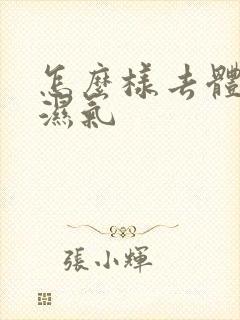 怎麼樣去體
濕氣
張小輝